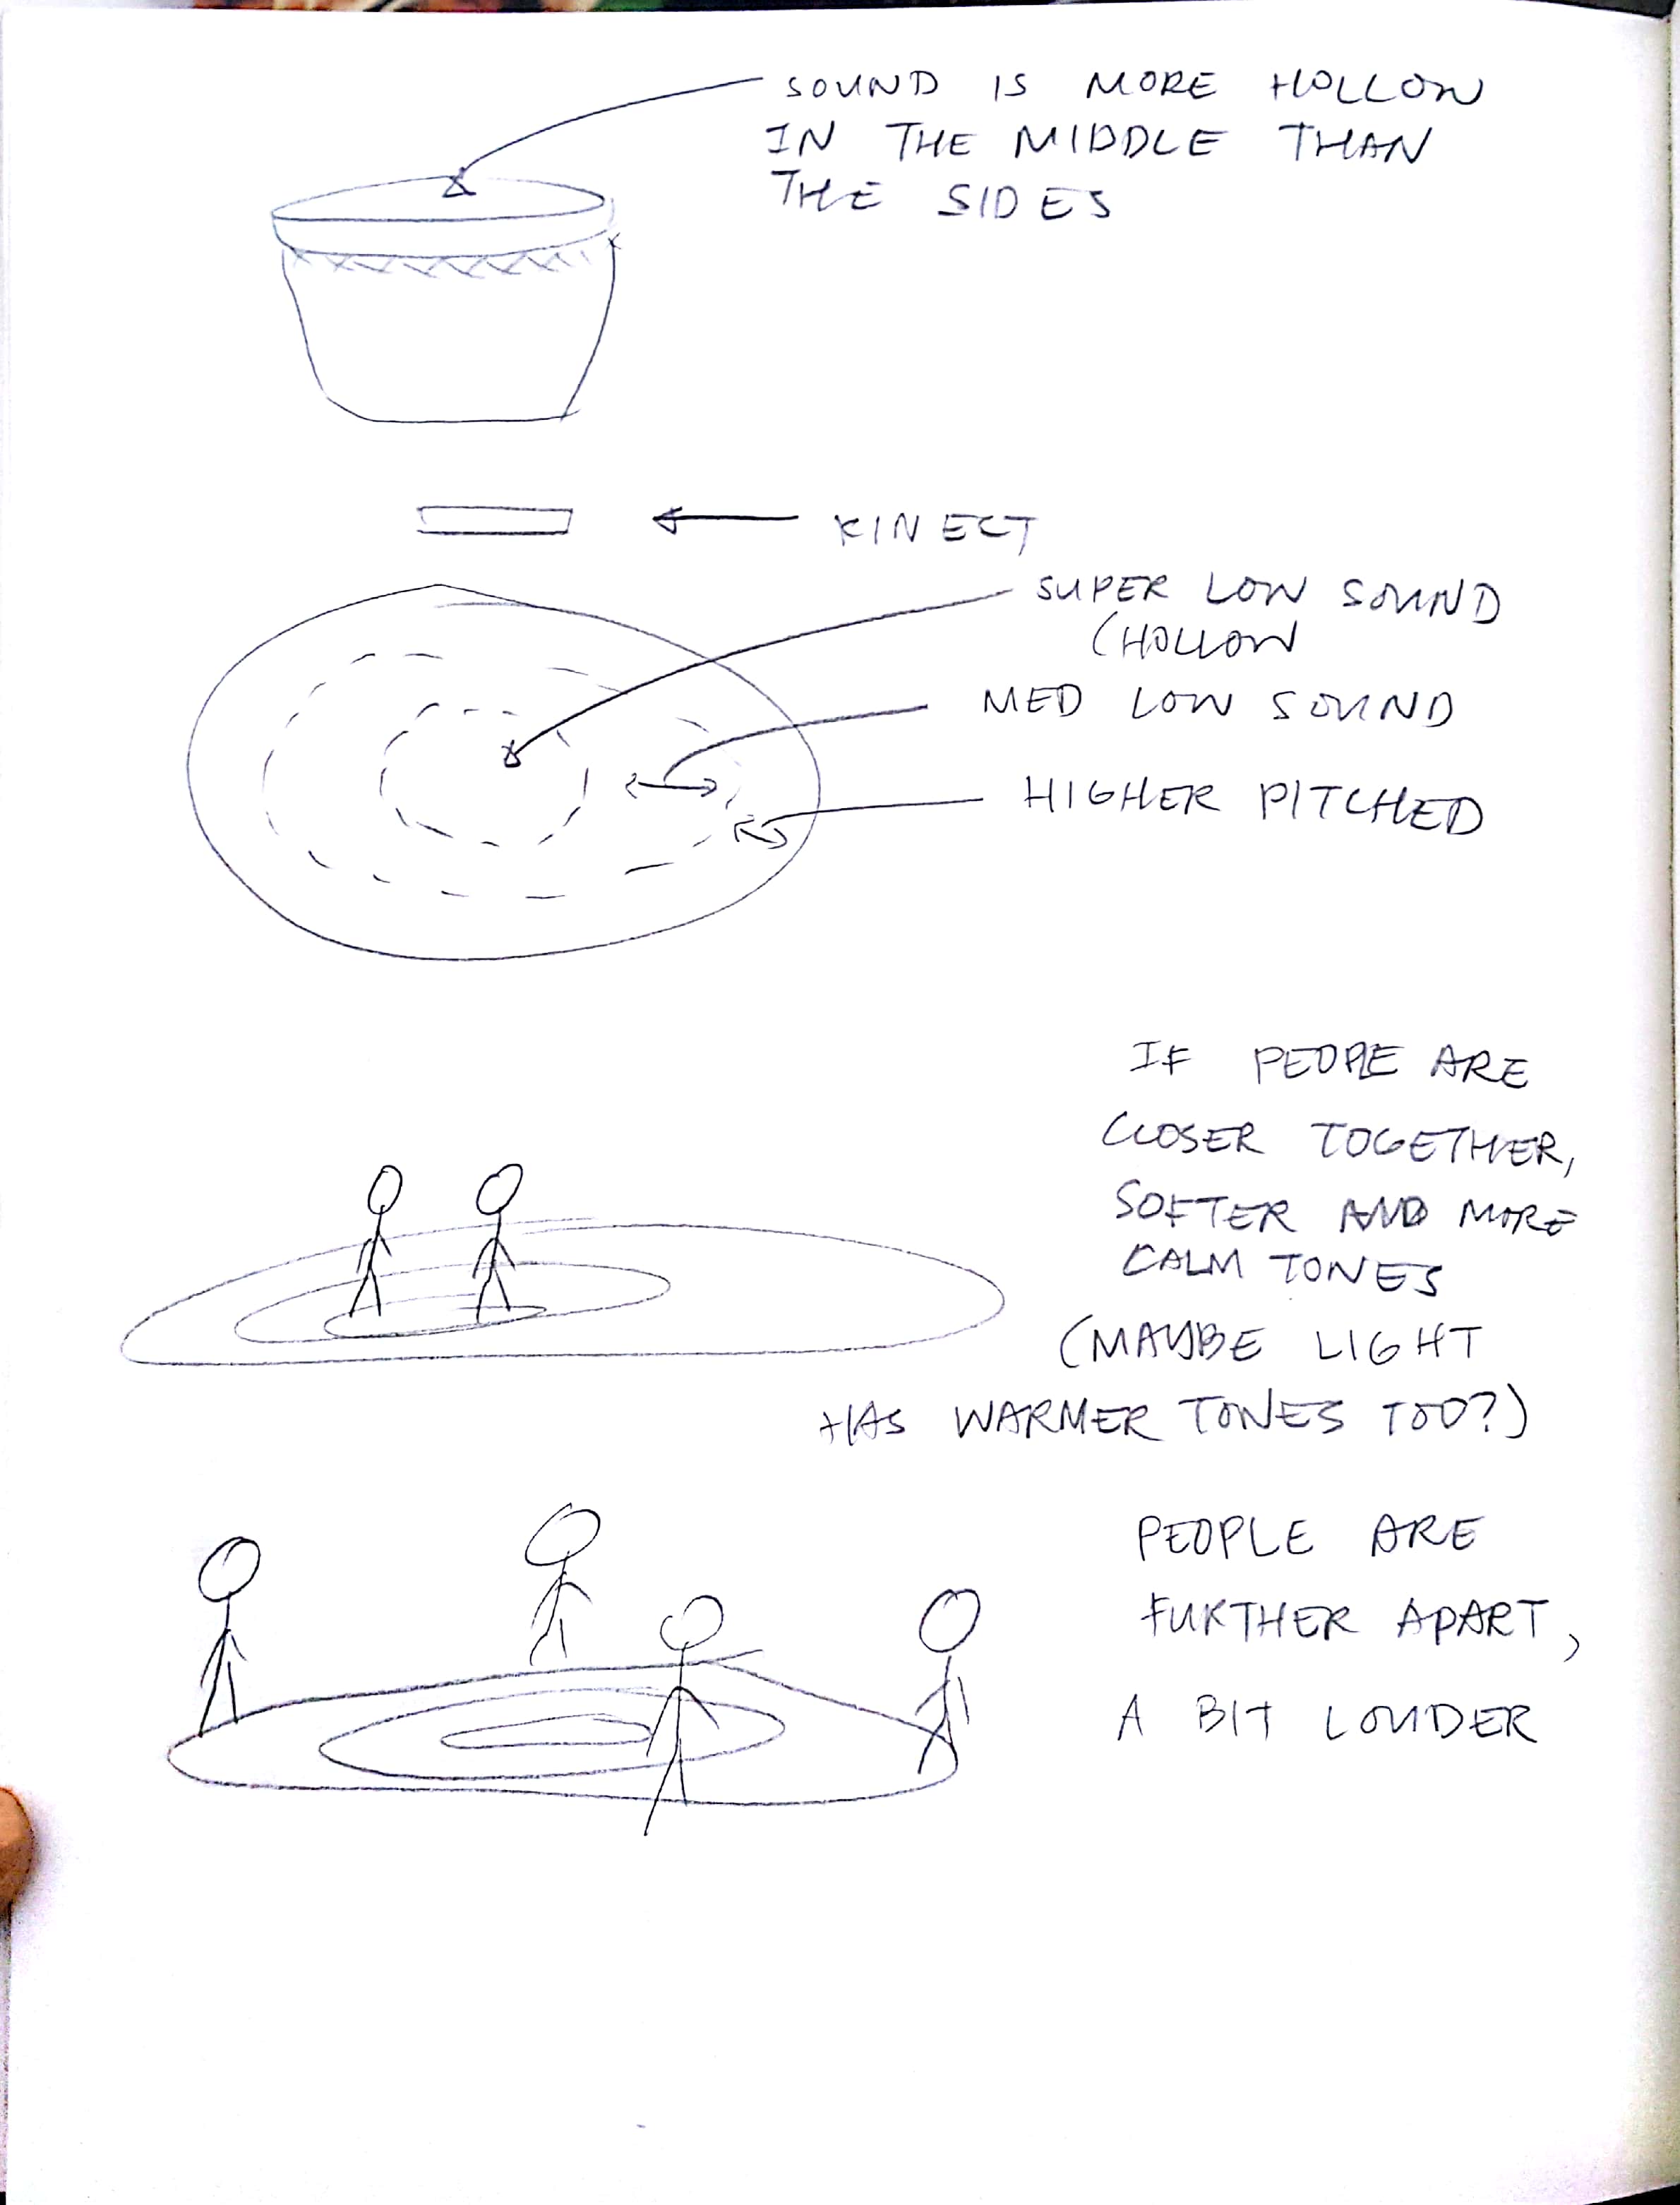 SOUND IS MORE HOLLOW
IN THE MIDDLE THAN
THE SIDES
KINECT
SUPER LOW SOUND
(HOLLOW
MED LOW SOUND
HIGHER PITCHED
IF PEOPLE ARE
CLOSER TOGETHER,
SOFTER AND MORE
CALM TONES
(MAYBE LIGHT
HAS WARMER TONES TOO?)
PEOPLE ARE
FURTHER APART,
A BIT LOUDER